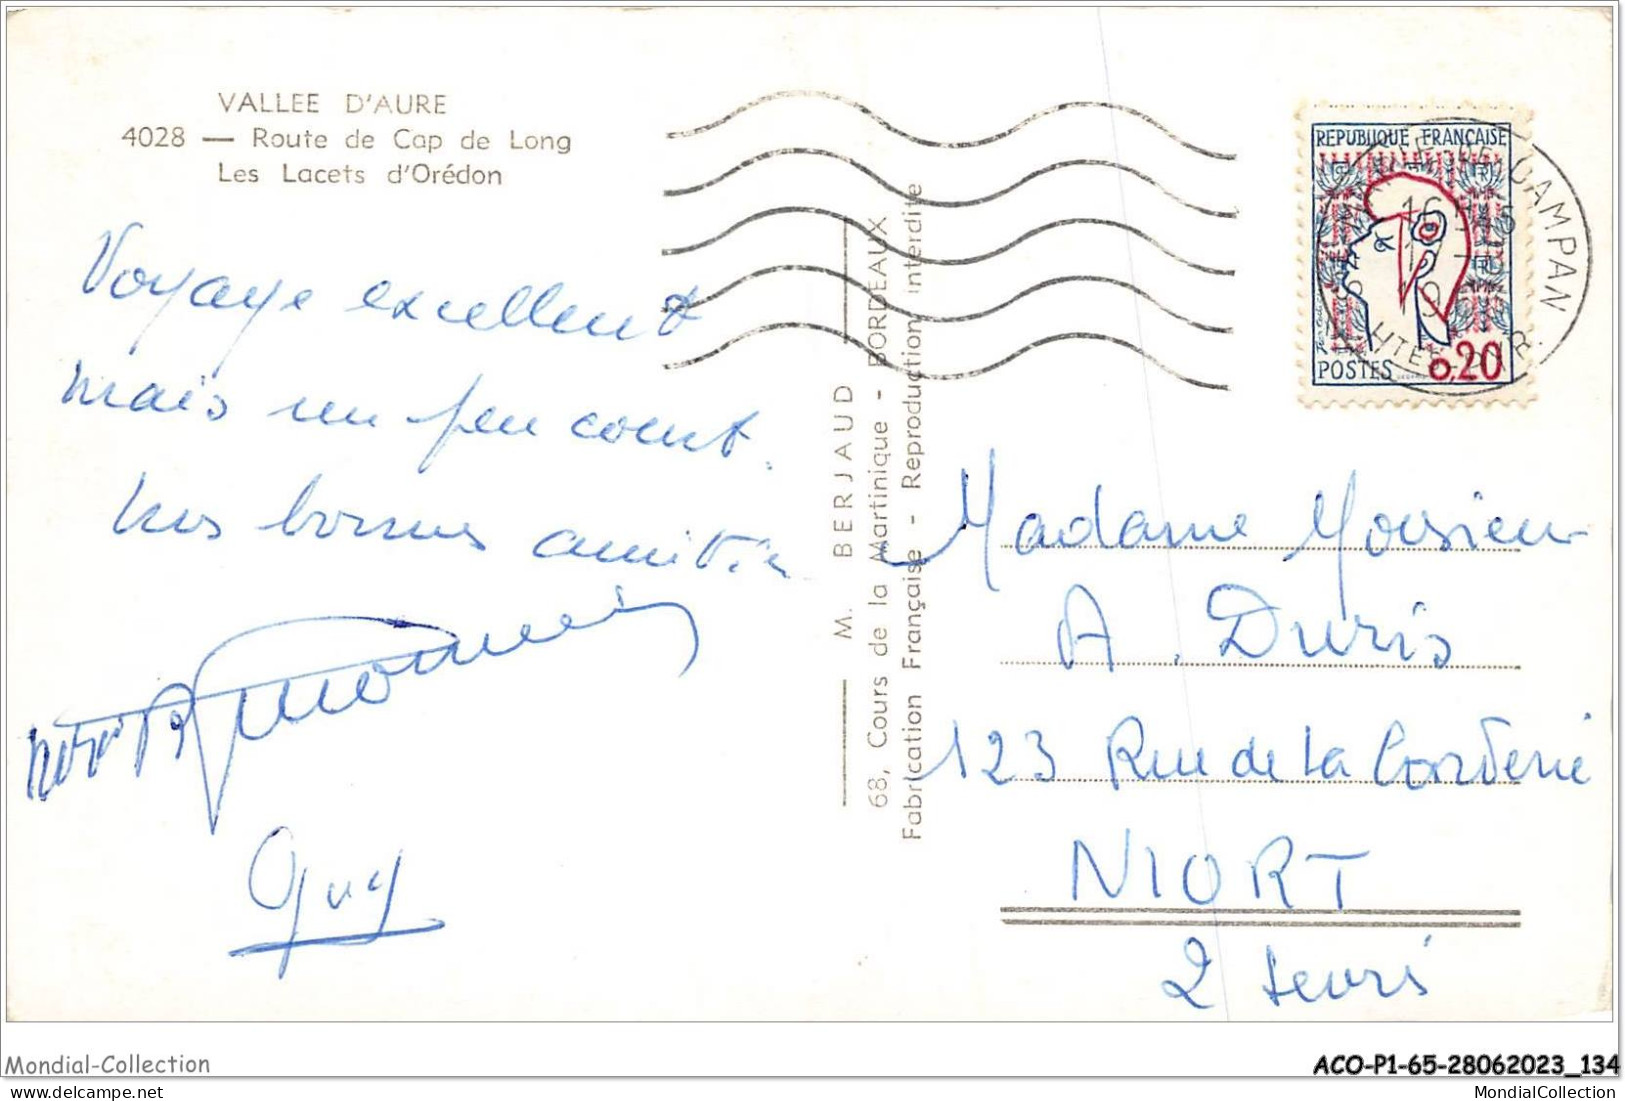 VALLEE D'AURE
4028 — Route de Cap de Long
Les Lacets d'Orédon
Voyage excellent
mais un peu court.
Nos bonnes amitiés
Guy
M. BERJAUD
68, Cours de la Martinique - BORDEAUX
Fabrication Française - Reproduction Interdite
REPUBLIQUE FRANÇAISE
POSTES 0,20
CAMPAN
HTES PYR.
Madame Monsieur
A. Duris
123 Rue de la Corderie
NIORT
2 Sevres
Mondial-Collection
ACO-P1-65-28062023_134
MondialCollection